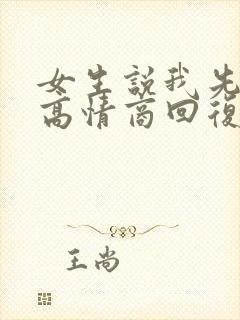 女生説我先
高情商回復
王尚